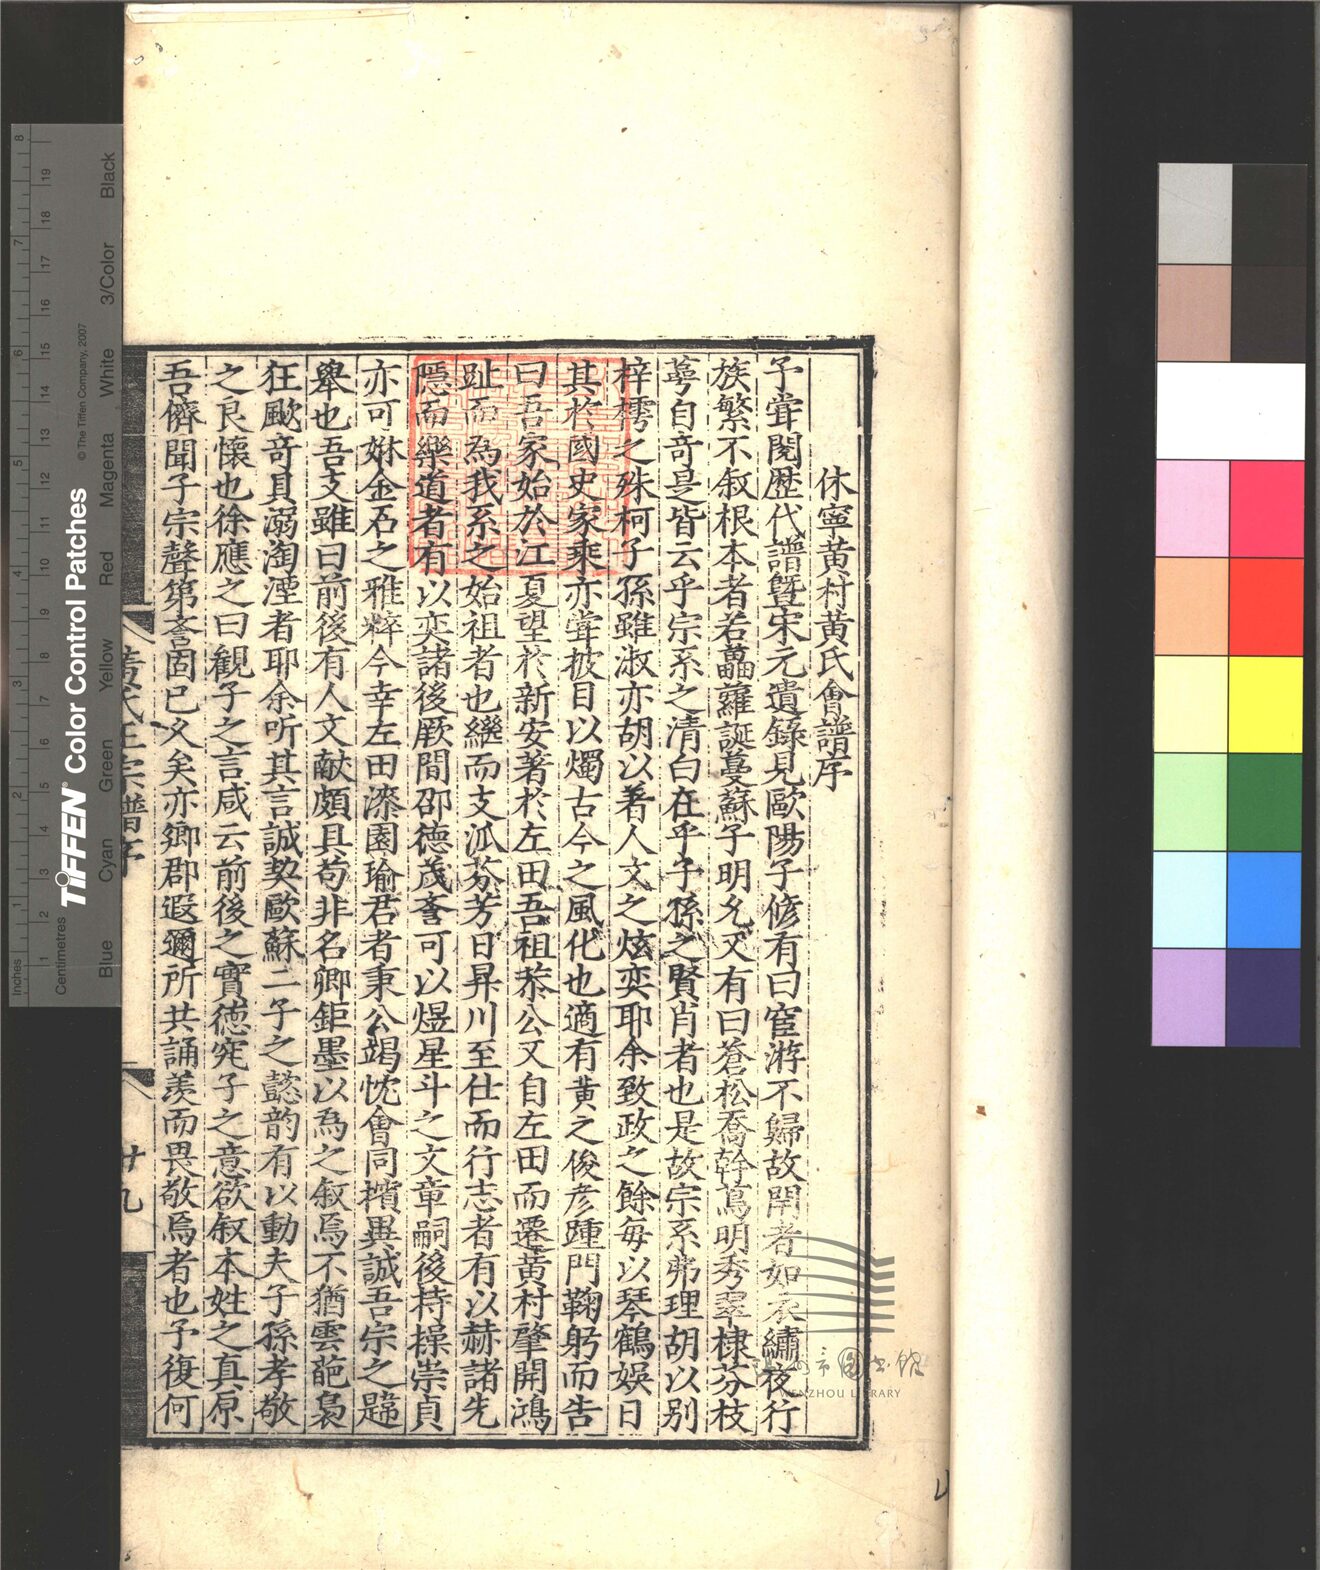 休寧黃村黃氏會譜序
予甞閱歷代譜曁宋元遺錄見歐陽子脩有曰宦游不歸故閈者如衣繡夜行
族繁不叙根本者若藟蘿誕蔓蘇子明允又有曰蒼松喬幹蔦明秀翠棣芬枝
萼自竒是皆云乎宗系之清白在乎子孫之賢肖者也是故宗系弗理胡以别
梓樗之殊柯子孫雖淑亦胡以着人文之炫奕耶余致政之餘每以琴鶴娛日
其於國史家乘亦甞披目以燭古今之風化也適有黃之俊彥踵門鞠躬而告
曰吾家始於江夏望於新安著於左田吾祖恭公又自左田而遷黃村肇開鴻
趾而為我系之始祖者也繼而支派芬芳日昇川至仕而行志者有以赫諸先
隱而樂道者有以奕諸後厥間卲德茂耋可以煜星斗之文章嗣後持操崇貞
亦可姝金石之雅粹今幸左田漆園瑜君者秉公竭忱會同擯異誠吾宗之韙
舉也吾支雖曰前後有人文獻頗具苟非名卿鉅墨以為之叙焉不猶雲葩裊
狂颷竒貝溺淘湮者耶余听其言誠契歐蘇二子之懿韵有以動夫子孫孝敬
之良懷也徐應之曰觀子之言咸云前後之實德究子之意欲叙本姓之真原
吾儕聞子宗聲第耋固已久矣亦卿郡遐邇所共誦羨而畏敬焉者也予復何
黃氏正宗譜序
廿九
Inches
Centimetres
TIFFEN® Color Control Patches
© The Tiffen Company, 2007
Blue
Cyan
Green
Yellow
Red
Magenta
White
3/Color
Black
温州市图书馆
WENZHOU LIBRARY